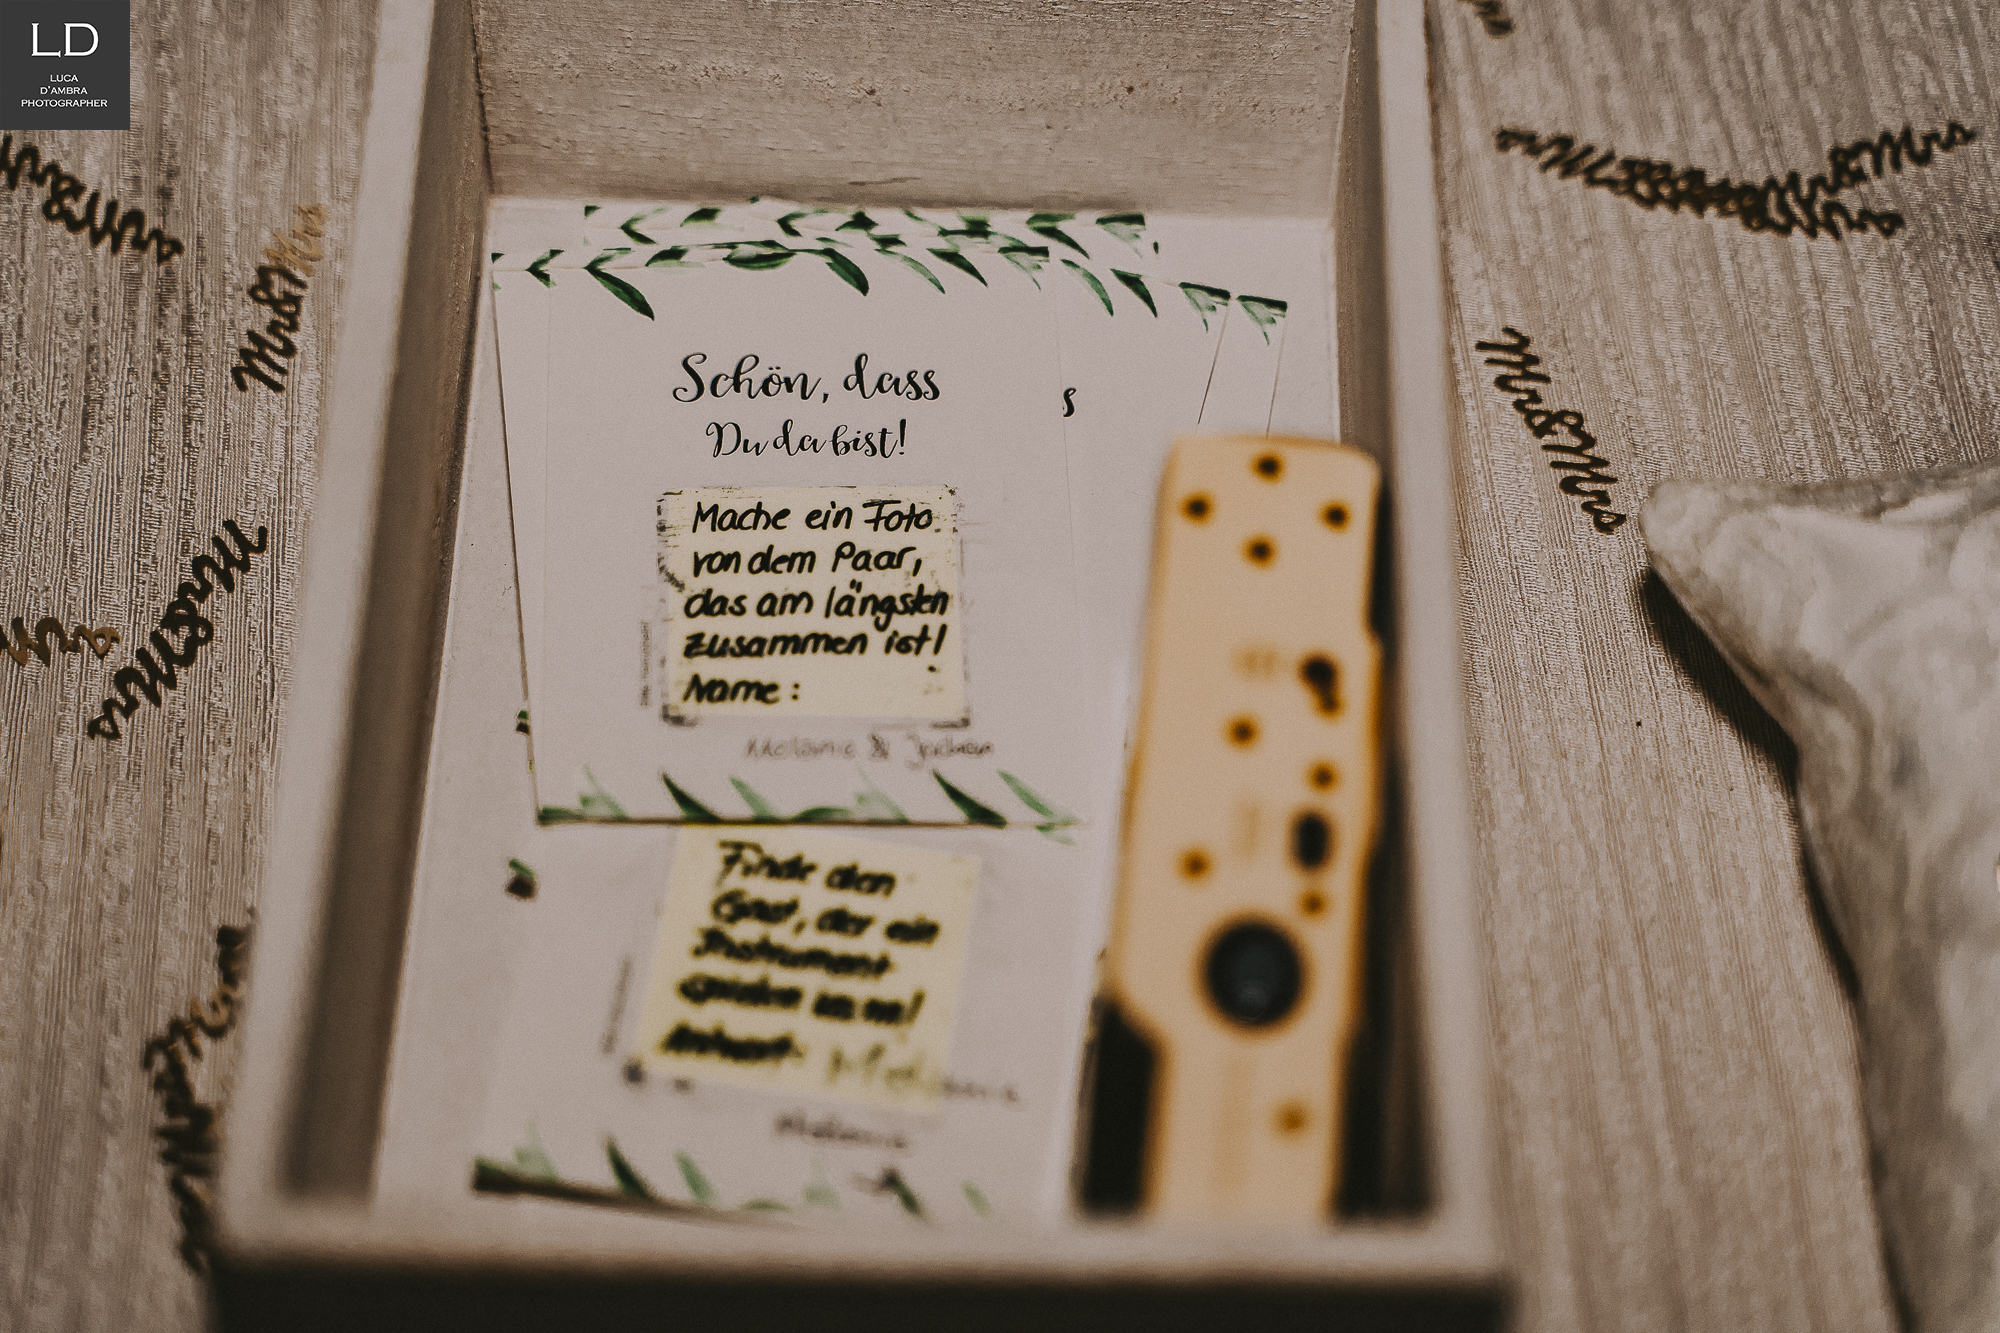 LD
LUCA
D'AMBRA
PHOTOGRAPHER
Mr&Mrs
Mr&Mrs
Mr&Mrs
Mr&Mrs
Schön, dass
Du da bist!
Mache ein Foto
von dem Paar,
das am längsten
zusammen ist!
Name:
Melanie &
Finde den
Gast, der ein
Instrument
spielen kann!
Antwort:
Melanie